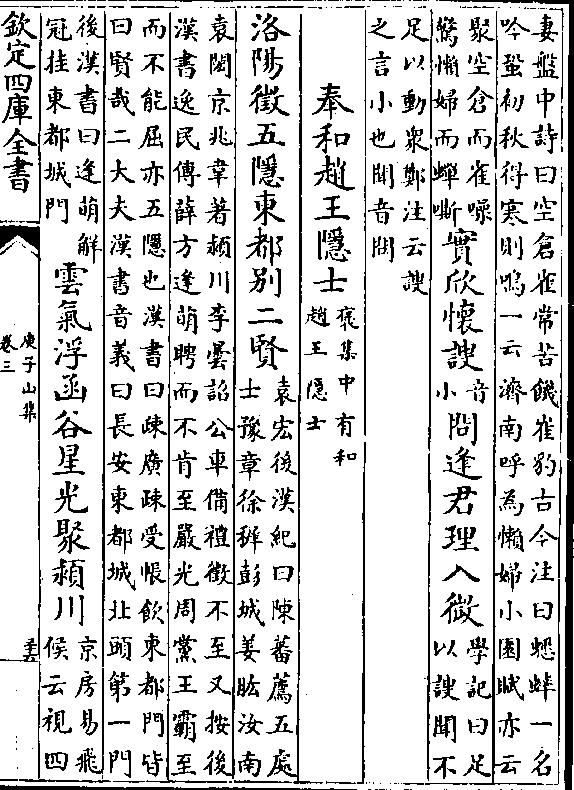 妻盤中詩曰空倉雀常苦饑崔豹古今注曰蟋蟀一名
吟蛩初秋得寒則鳴一云濟南呼為懶婦小園賦亦云
聚空倉而雀噪
驚懶婦而蟬嘶
實欣懷謏
音
小
問逢君理入微
學記曰足
以謏聞不
足以動衆鄭注云謏
之言小也聞音問
奉和趙王隱士
褒集中有和
趙王隱士
洛陽徵五隱東都別二賢
袁宏後漢紀曰陳蕃薦五處
士豫章徐穉彭城姜肱汝南
袁閎京兆韋著頴川李曇詔公車備禮徵不至又按後
漢書逸民傳薛方逢萌聘而不肯至嚴光周黨王霸至
而不能屈亦五隱也漢書曰疎廣疎受帳飲東都門皆
曰賢哉二大夫漢書音義曰長安東都城北頭第一門
後漢書曰逢萌解
冠挂東都城門
雲氣浮函谷星光聚頴川
京房易飛
候云視四
欽定四庫全書
庾子山集
卷三